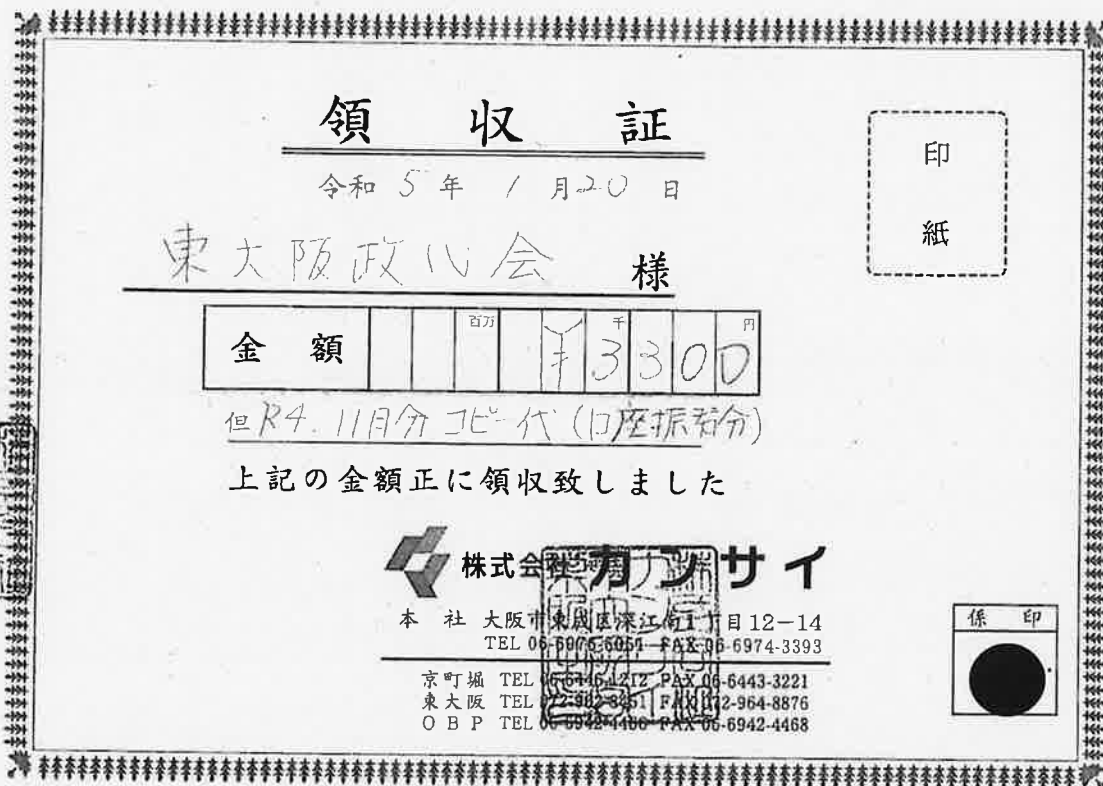 領収証
印紙
令和 5 年 1 月 20 日
東大阪政心会 様
金額 百万 ¥ 千 3 3 0 0 円
但 R4.11月分 コピー代 (口座振替分)
上記の金額正に領収致しました
株式会社 カンサイ
本社 大阪市東成区深江南1丁目12-14
TEL FAX 06-6974-3393
京町堀 TEL 06-6446-1212 FAX 06-6443-3221
東大阪 TEL FAX 072-964-8876
OBP TEL 06-6942-4466 FAX 06-6942-4468
係印